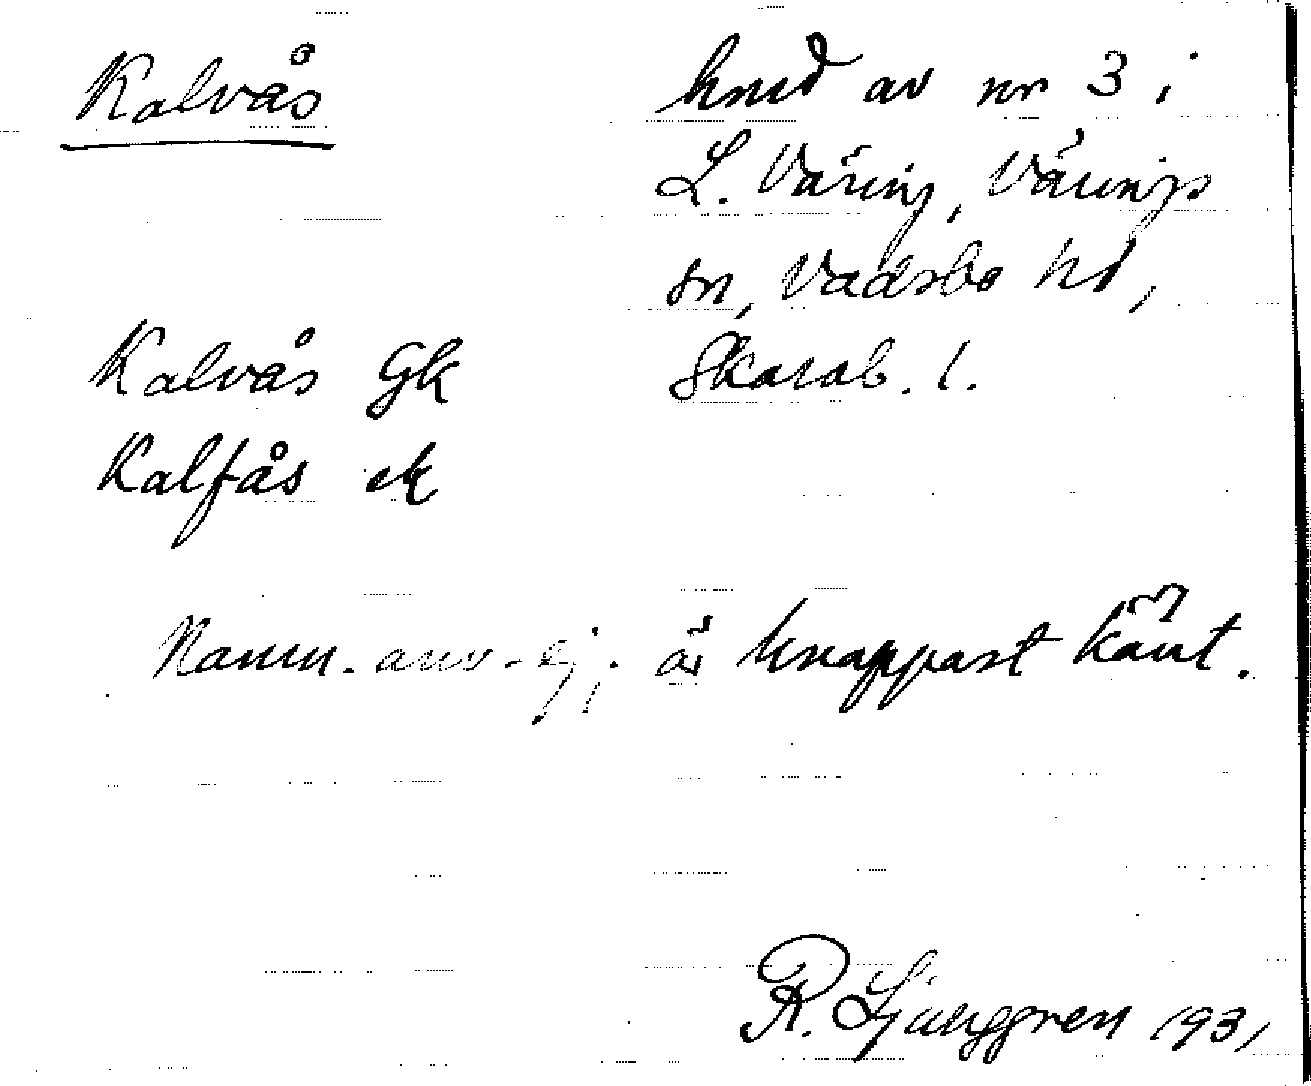 Kalvås
hmd av nr 3 i
L. Väring, Värings
sn, Vadsbo hd,
Skarab. l.
Kalvås Gk
Kalfås ek
Namn. anv. ej; är knappast känt.
R. Ljunggren 1931